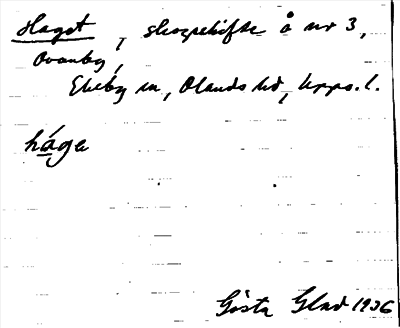 Haget, skogsskifte å nr 3,
Ovanby,
Ekeby sn, Olands hd, Upps. l.
håga
Gösta Glad 1936